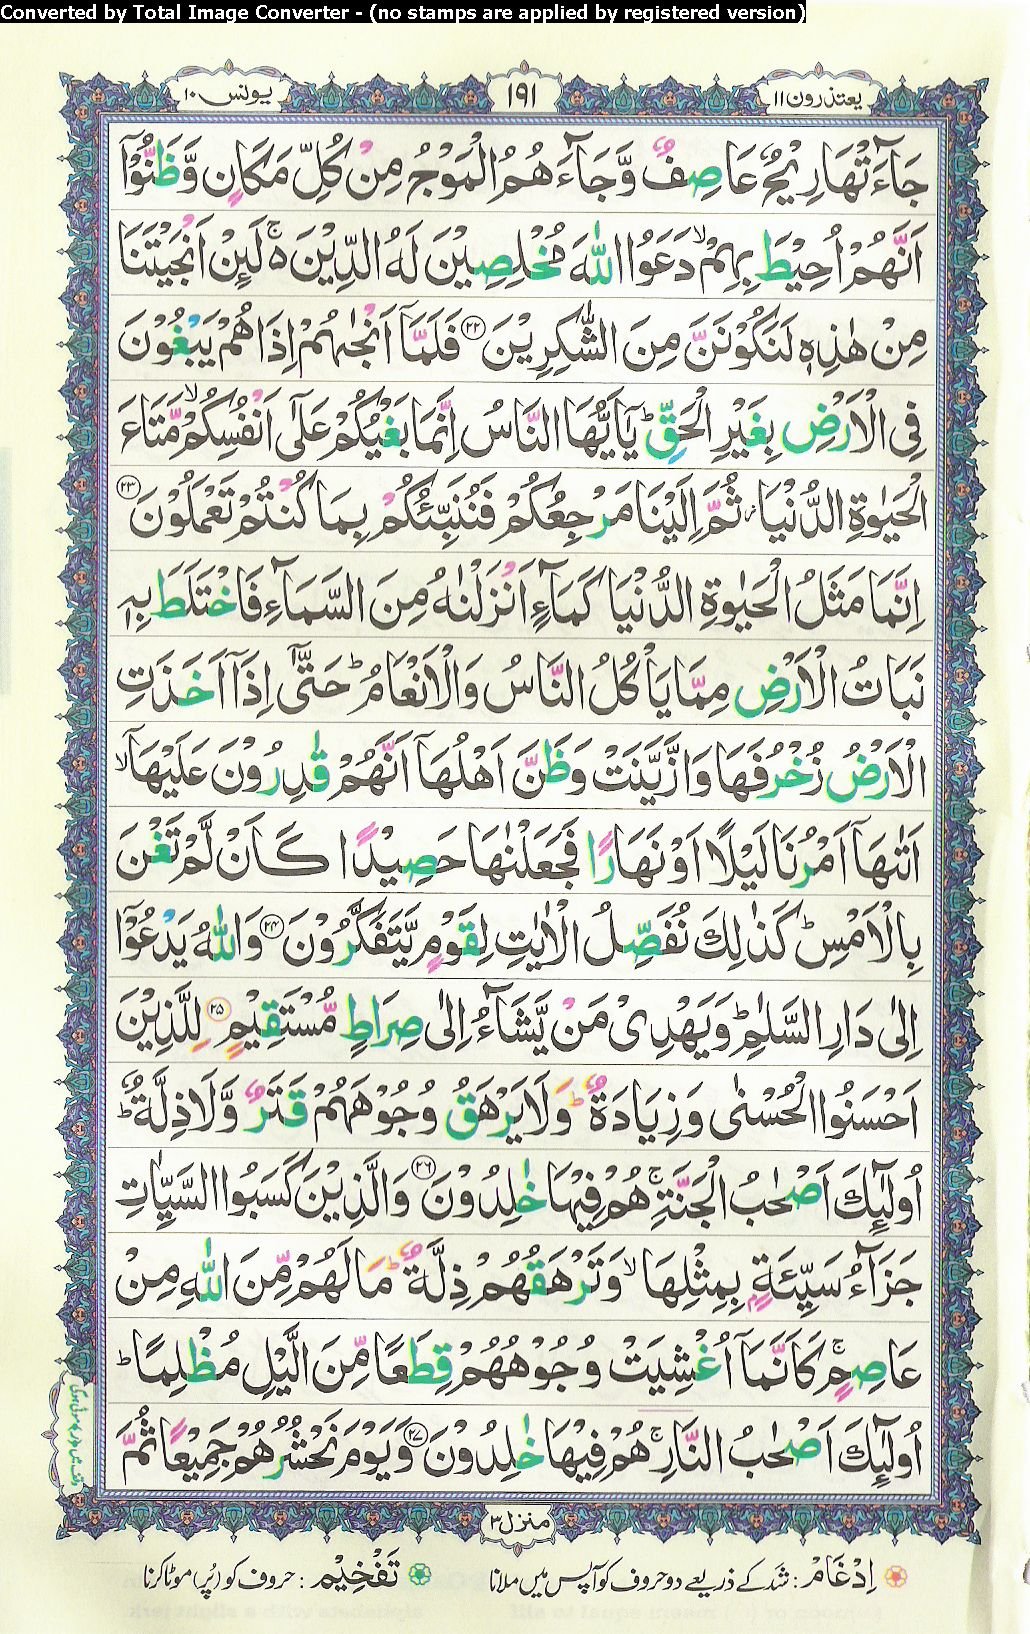 Converted by Total Image Converter - (no stamps are applied by registered version)
یعتذرون ۱۱
۱۹۱
یونس ۱۰
جَآءَتْهَا رِيْحٌ عَاصِفٌ وَّجَآءَهُمُ الْمَوْجُ مِنْ كُلِّ مَكَانٍ وَّظَنُّوْۤا
اَنَّهُمْ اُحِيْطَ بِهِمْ ۙ دَعَوُا اللّٰهَ مُخْلِصِيْنَ لَهُ الدِّيْنَ ۬ۚ لَئِنْ اَنْجَيْتَنَا
مِنْ هٰذِهٖ لَنَكُوْنَنَّ مِنَ الشّٰكِرِيْنَ ﴿۲۲﴾ فَلَمَّاۤ اَنْجٰىهُمْ اِذَا هُمْ يَبْغُوْنَ
فِى الْاَرْضِ بِغَيْرِ الْحَقِّ ؕ يٰۤاَيُّهَا النَّاسُ اِنَّمَا بَغْيُكُمْ عَلٰۤى اَنْفُسِكُمْ ۙ مَّتَاعَ
الْحَيٰوةِ الدُّنْيَا ۫ ثُمَّ اِلَيْنَا مَرْجِعُكُمْ فَنُنَبِّئُكُمْ بِمَا كُنْتُمْ تَعْمَلُوْنَ ﴿۲۳﴾
اِنَّمَا مَثَلُ الْحَيٰوةِ الدُّنْيَا كَمَآءٍ اَنْزَلْنٰهُ مِنَ السَّمَآءِ فَاخْتَلَطَ بِهٖ
نَبَاتُ الْاَرْضِ مِمَّا يَاْكُلُ النَّاسُ وَالْاَنْعَامُ ؕ حَتّٰۤى اِذَاۤ اَخَذَتِ
الْاَرْضُ زُخْرُفَهَا وَازَّيَّنَتْ وَظَنَّ اَهْلُهَاۤ اَنَّهُمْ قٰدِرُوْنَ عَلَيْهَاۤ ۙ
اَتٰىهَاۤ اَمْرُنَا لَيْلًا اَوْ نَهَارًا فَجَعَلْنٰهَا حَصِيْدًا كَاَنْ لَّمْ تَغْنَ
بِالْاَمْسِ ؕ كَذٰلِكَ نُفَصِّلُ الْاٰيٰتِ لِقَوْمٍ يَّتَفَكَّرُوْنَ ﴿۲۴﴾ وَاللّٰهُ يَدْعُوْۤا
اِلٰى دَارِ السَّلٰمِ ؕ وَيَهْدِىْ مَنْ يَّشَآءُ اِلٰى صِرَاطٍ مُّسْتَقِيْمٍ ﴿۲۵﴾ لِلَّذِيْنَ
اَحْسَنُوا الْحُسْنٰى وَزِيَادَةٌ ؕ وَلَا يَرْهَقُ وُجُوْهَهُمْ قَتَرٌ وَّلَا ذِلَّةٌ ؕ
اُولٰٓئِكَ اَصْحٰبُ الْجَنَّةِ ۚ هُمْ فِيْهَا خٰلِدُوْنَ ﴿۲۶﴾ وَالَّذِيْنَ كَسَبُوا السَّيِّاٰتِ
جَزَآءُ سَيِّئَةٍۢ بِمِثْلِهَا ۙ وَتَرْهَقُهُمْ ذِلَّةٌ ؕ مَا لَهُمْ مِّنَ اللّٰهِ مِنْ
عَاصِمٍ ۚ كَاَنَّمَاۤ اُغْشِيَتْ وُجُوْهُهُمْ قِطَعًا مِّنَ الَّيْلِ مُظْلِمًا ؕ
اُولٰٓئِكَ اَصْحٰبُ النَّارِ ۚ هُمْ فِيْهَا خٰلِدُوْنَ ﴿۲۷﴾ وَيَوْمَ نَحْشُرُهُمْ جَمِيْعًا ثُمَّ
منزل ۳
اِدْغَامْ : شد کے ذریعے دو حروف کو آپس میں ملانا
تَفْخِيْمْ : حروف کو (پُر) موٹا کرنا